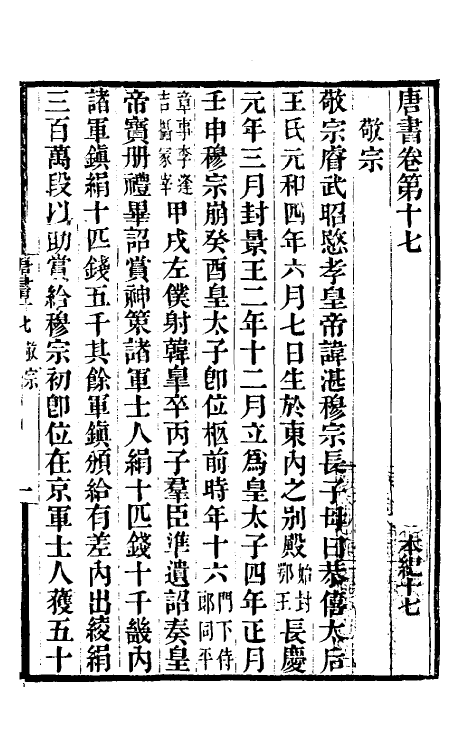 唐書卷第十七
本紀十七
敬宗
敬宗睿武昭愍孝皇帝諱湛穆宗長子母曰恭僖太后
王氏元和四年六月七日生於東內之別殿始封鄂王長慶
元年三月封景王二年十二月立爲皇太子四年正月
壬申穆宗崩癸酉皇太子卽位柩前時年十六門下侍郎同平
章事李逢吉攝冢宰甲戌左僕射韓臯卒丙子羣臣準遺詔奏皇
帝寶册禮畢詔賞神策諸軍士人絹十匹錢五千其餘軍鎮頒給有差內出綾絹
三百萬段以助賞給穆宗初卽位在京軍士人獲五十
唐書十七敬宗
一